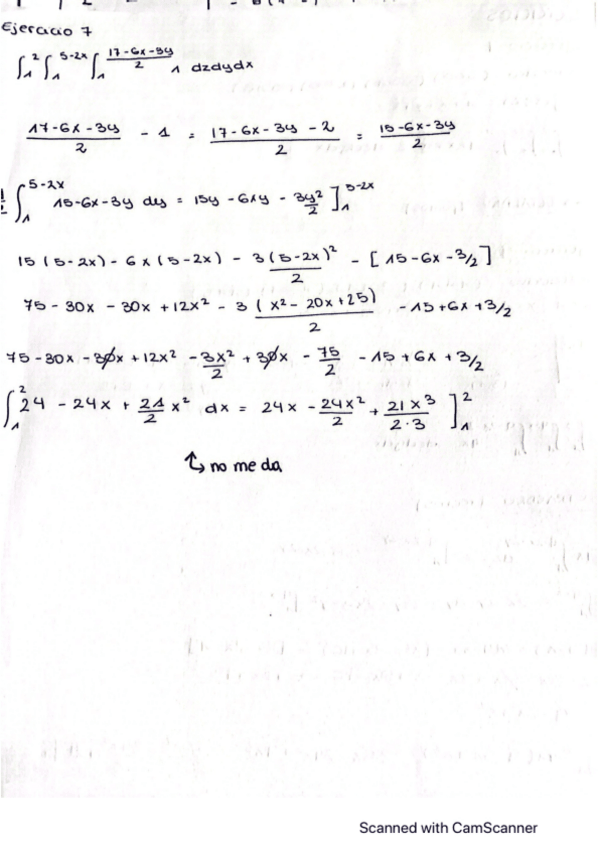 Ejercicio 7
∫₁² ∫₁^{5-2x} ∫₁^{(17-6x-3y)/2} 1 dzdydx
(17-6x-3y)/2 - 1 = (17-6x-3y-2)/2 = (15-6x-3y)/2
½ ∫₁^{5-2x} 15-6x-3y dy = 15y - 6xy - 3y²/2 ]₁^{5-2x}
15(5-2x) - 6x(5-2x) - 3(5-2x)²/2 - [15-6x-3/2]
75 - 30x - 30x + 12x² - 3 (x² - 20x + 25)/2 - 15 + 6x + 3/2
75-30x-30x + 12x² - 3x²/2 + 30x - 75/2 - 15 + 6x + 3/2
∫₁² 24 - 24x + 21/2 x² dx = 24x - 24x²/2 + 21x³/2·3 ]₁²
↳ no me da
Scanned with CamScanner